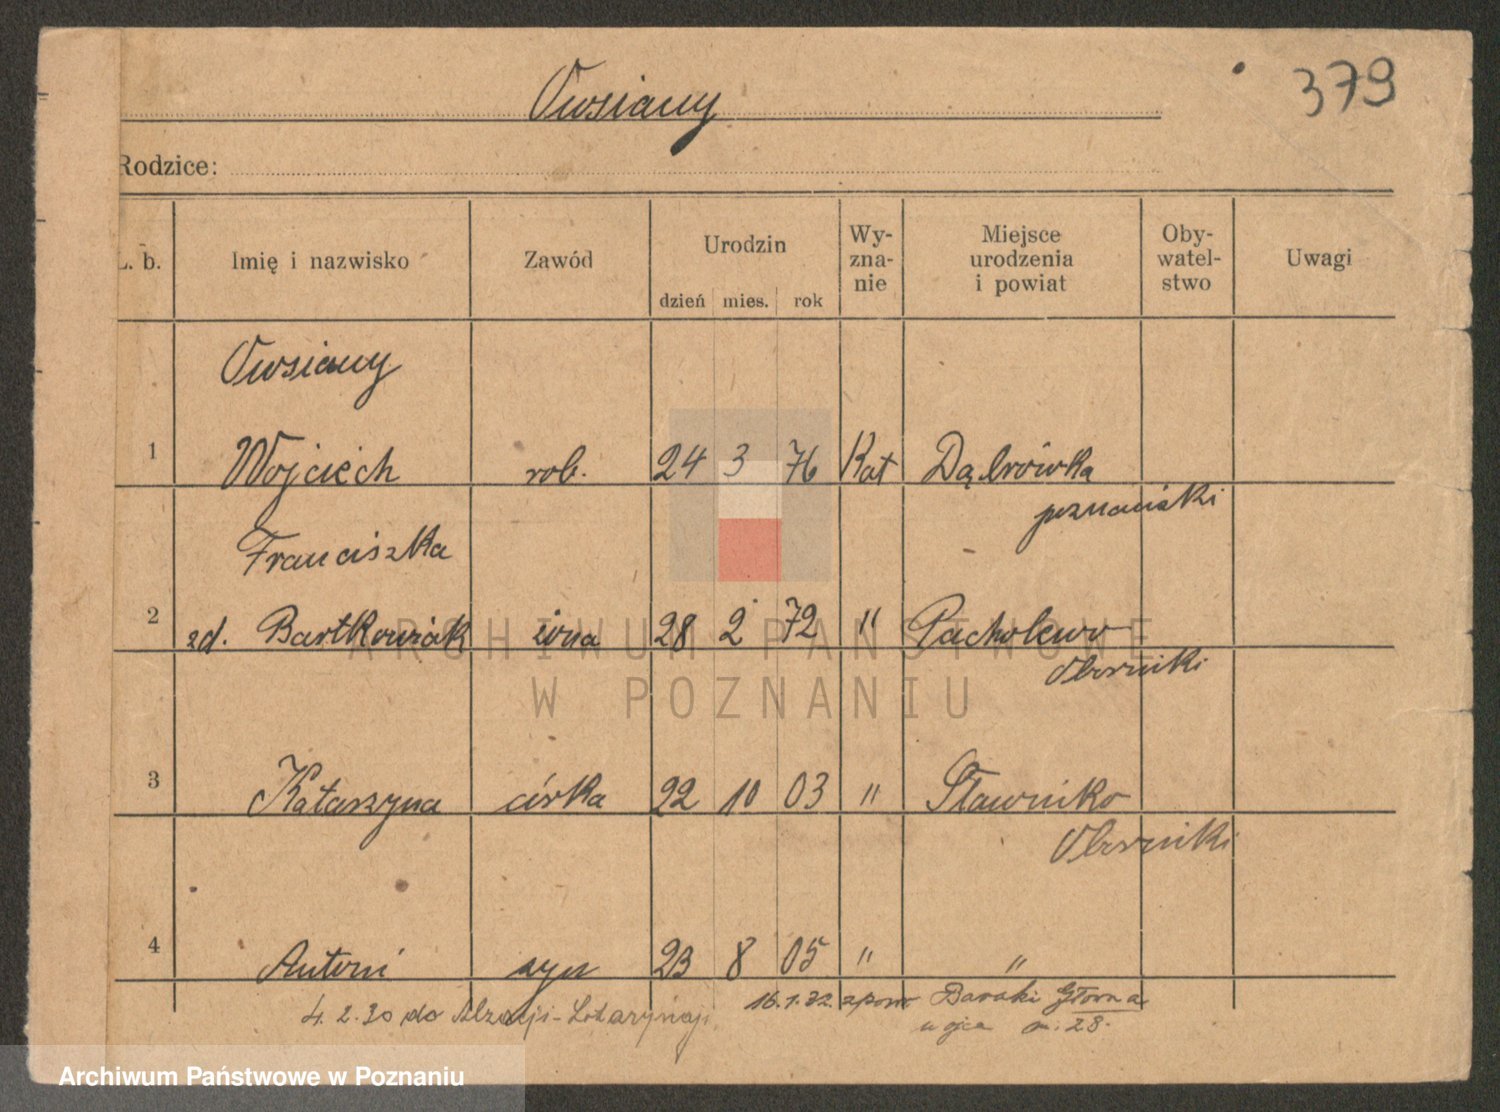 379
Owsiany
Rodzice:
L. b.
Imię i nazwisko
Zawód
Urodzin
dzień mies. rok
Wy-
zna-
nie
Miejsce
urodzenia
i powiat
Oby-
watel-
stwo
Uwagi
Owsiany
1 Wojciech rob. 24 3 76 Kat Dąbrówka
poznański
Franciszka
2 zd. Bartkowiak żona 28 2 72 " Pacholewo
Oborniki
3 Katarzyna córka 22 10 03 " Sławniko
Oborniki
4 Antoni syn 23 8 05 " "
4.2.30 do Alzacji-Lotaryngji
16.1.32. zpow Baraki Główna
u ojca m. 28.
ARCHIWUM PAŃSTWOWE
W POZNANIU
Archiwum Państwowe w Poznaniu